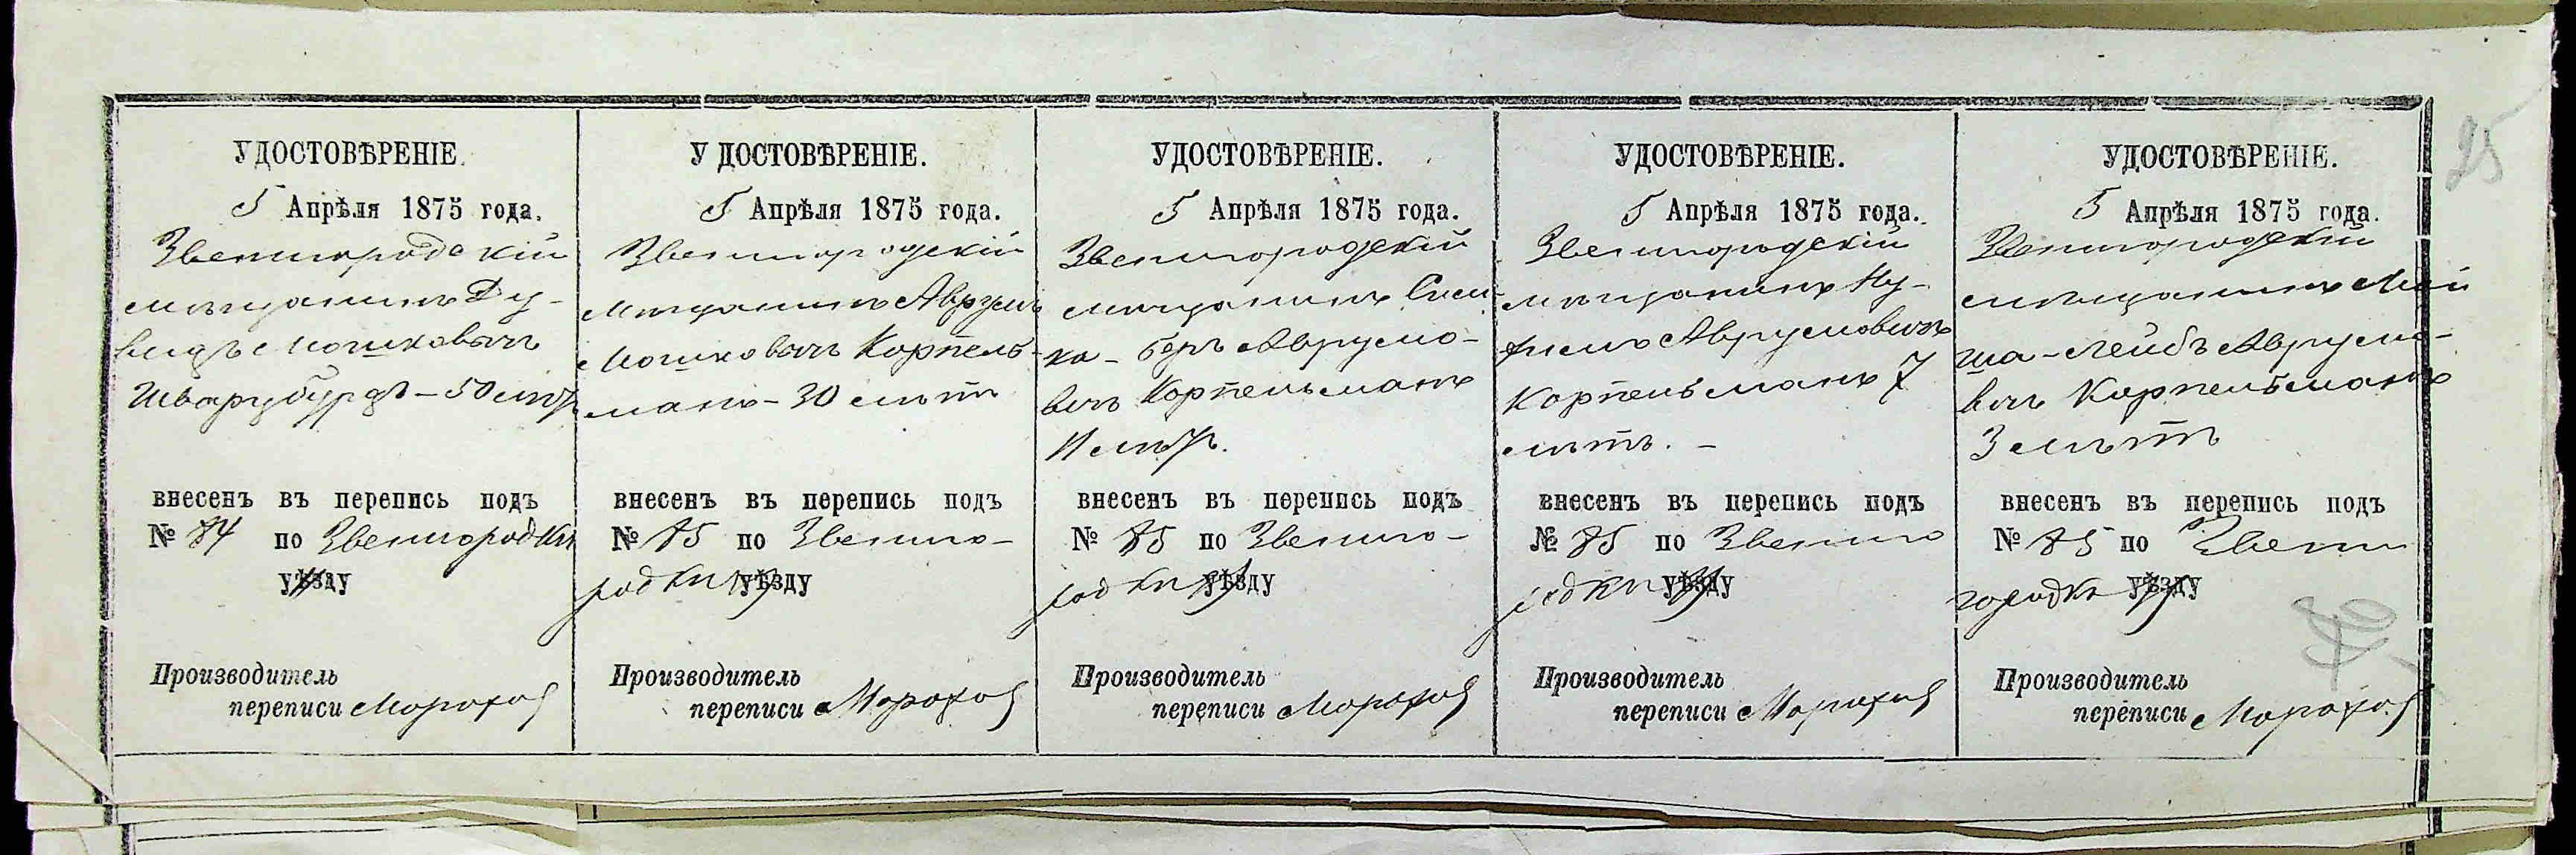 25
УДОСТОВѢРЕНІЕ.
5 Апрѣля 1875 года.
Звенигородскій
мѣщанинъ Ду-
видъ Мошковичъ
Шварцбурдъ - 50 лѣтъ
внесенъ въ перепись подъ
№ 84 по Звенигородкѣ
уѣзду
Производитель
переписи Морохов
УДОСТОВѢРЕНІЕ.
5 Апрѣля 1875 года.
Звенигородскій
мѣщанинъ Аврумъ
Мошковичъ Корпель-
манъ - 30 лѣтъ
внесенъ въ перепись подъ
№ 85 по Звениго-
родкѣ уѣзду
Производитель
переписи Морохов
УДОСТОВѢРЕНІЕ.
5 Апрѣля 1875 года.
Звенигородскій
мѣщанинъ Сим-
ха-Беръ Аврумо-
вичъ Корпельманъ
11 лѣтъ.
внесенъ въ перепись подъ
№ 85 по Звениго-
родкѣ уѣзду
Производитель
переписи Морохов
УДОСТОВѢРЕНІЕ.
5 Апрѣля 1875 года.
Звенигородскій
мѣщанинъ Ну-
Аврумовичъ
Корпельманъ 7
лѣтъ. -
внесенъ въ перепись подъ
№ 85 по Звениго
родкѣ уѣзду
Производитель
переписи Морохов
УДОСТОВѢРЕНІЕ.
5 Апрѣля 1875 года.
Звенигородскій
мѣщанинъ Мой
ша-Лейбъ Аврумо-
вичъ Корпельманъ
3 лѣтъ
внесенъ въ перепись подъ
№ 85 по Звени
городкѣ уѣзду
Производитель
переписи Морохов